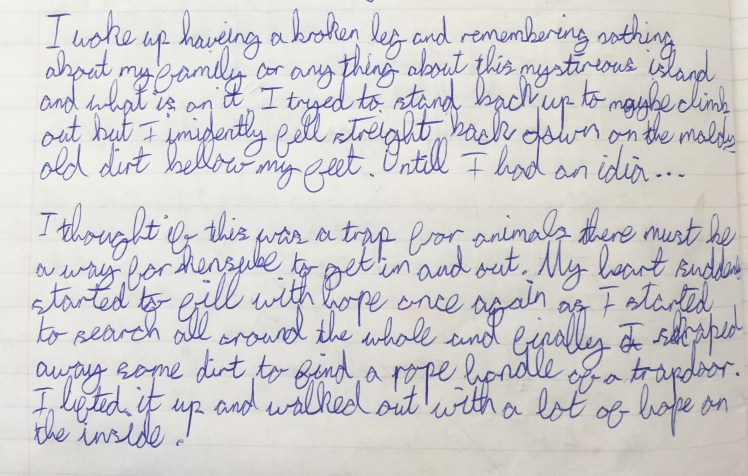 I woke up haveing a broken leg and remembering nothing
about my family or any thing about this mystirious island
and what is on it. I tryed to stand back up to maybe climb
out but I imidently fell streight back down on the moldy
old dirt bellow my feet. Untill I had an idia...
I thought if this was a trap for animals there must be
a way for to get in and out. My heart suddenly
started to fill with hope once again as I started
to search all around the whole and finally I scraped
away some dirt to find a rope handle of a trapdoor.
I lifted it up and walked out with a lot of hope on
the inside.